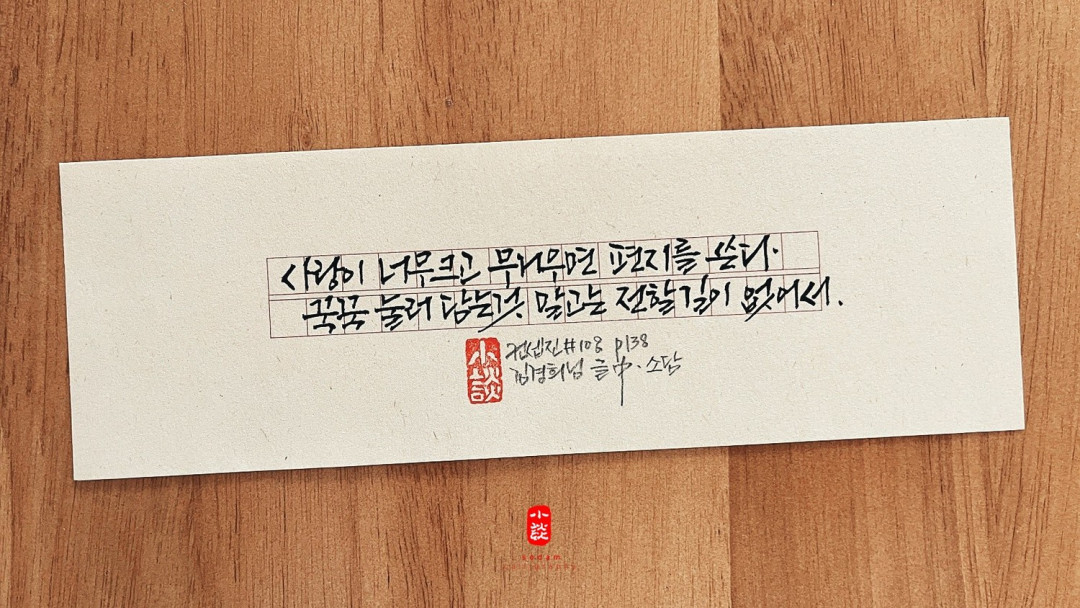 사랑이 너무 크고 무거우면 편지를 쓴다.
꾹꾹 눌러 담는 것 말고는 전할 길이 없어서.
컨셉진#108 p138
김경희님 글中. 소담
小談
小談
sodam